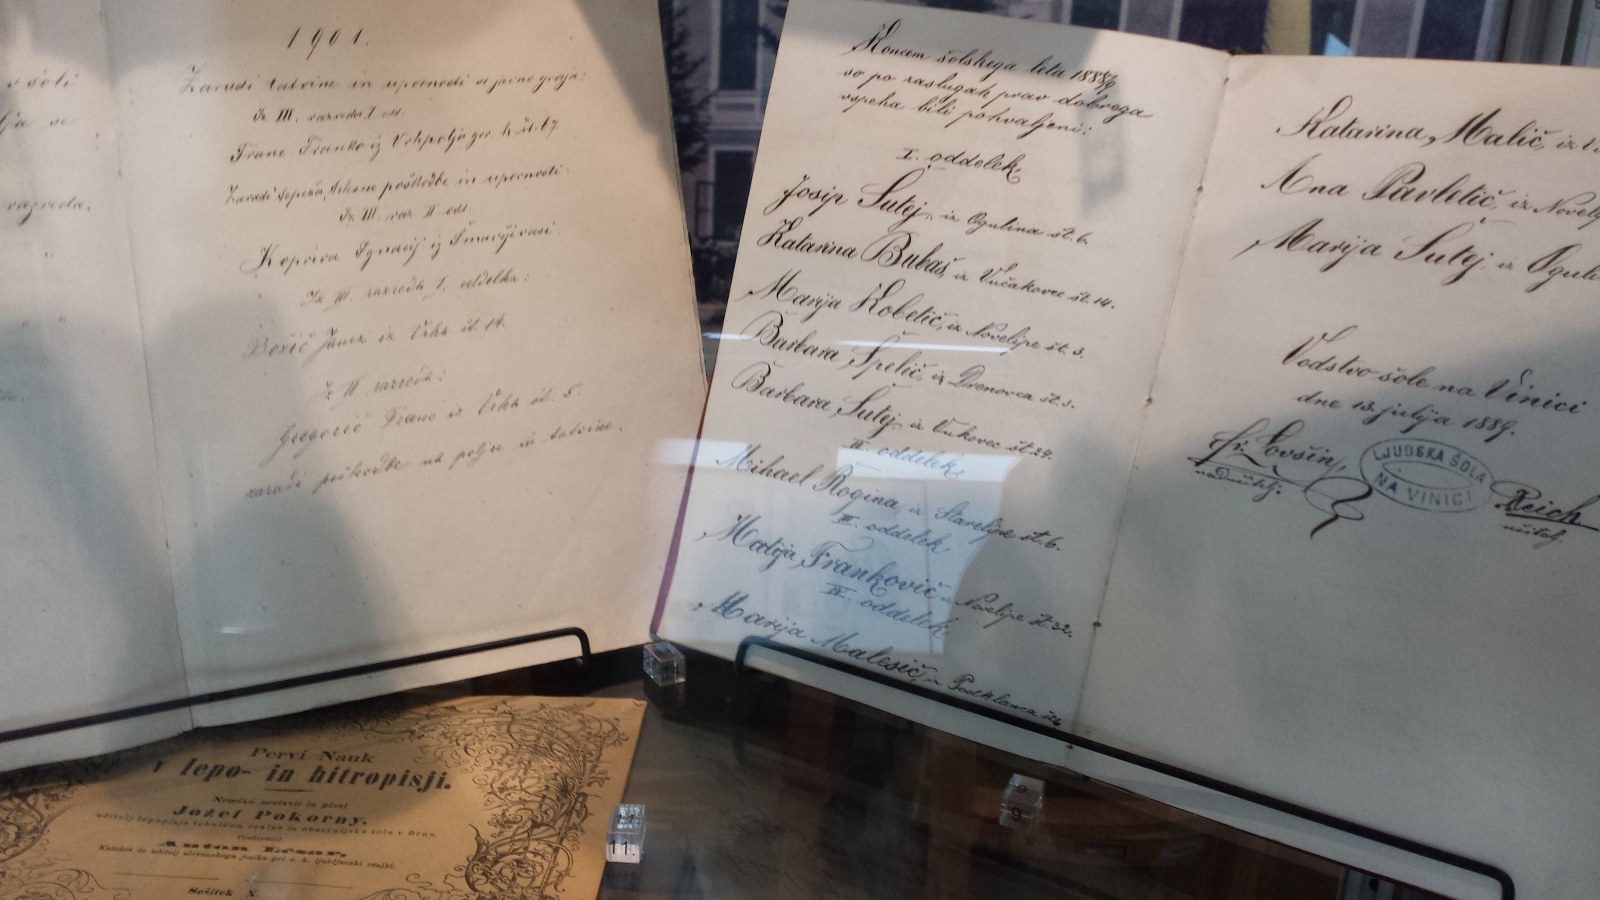 v šoli
lja se
razreda.
"
1901.
Zaradi tatvine in upornosti se javno graja:
Iz III. razreda I. odd.
Franc Franko iz Vrhpolja št. 67
Zaradi tepeža, telesne poškodbe in upornosti:
Iz III. raz. II. odd.
Kopriva Ignacij iz Šmavčji vasi.
Iz III. razreda I. oddelka:
Božič Janez iz Vrha št. 14.
Iz II. razreda:
Gregorič Franc iz Vrha št. 5.
zaradi poškodbe na polju in tatvine.
Koncem šolskega leta 1888/9
so po zaslugah prav dobrega
vspeha bili pohvaljeni:
I. oddelek
Josip Šutej, iz Ogulina št. 6.
Katarina Bubaš, iz Vučakovec št. 14.
Marija Kobetič, iz Novelipe št. 3.
Barbara Špelič, iz Drenovca št. 3.
Barbara Šutej, iz Vukovec št. 24.
II. oddelek
Mihael Rogina iz Starelipe št. 6.
III. oddelek
Matija Frankovič iz Novelipe št. 32.
IV. oddelek
Marija Malesič, iz Podklanca št.
Katarina Malič, iz
Ana Pavletič, iz Novelip
Marija Šutej, iz Ogul
Vodstvo šole na Vinici
dne 13. julija 1889.
Fr. Lovšin,
nadučitelj.
LJUDSKA ŠOLA
NA VINICI
Reich
učitelj.
Pervi Nauk
v lepo- in hitropisji.
Nemško sostavil in pisal
Jožef Pokorny,
učitelj lepopisja tehnične, realne in obertnijske šole v Brnu.
Poslovenil
Anton Lésar,
Katehet in učitelj slovenskega jezika pri c. k. ljubljanski realki.
Sešitek X.
9.
11.